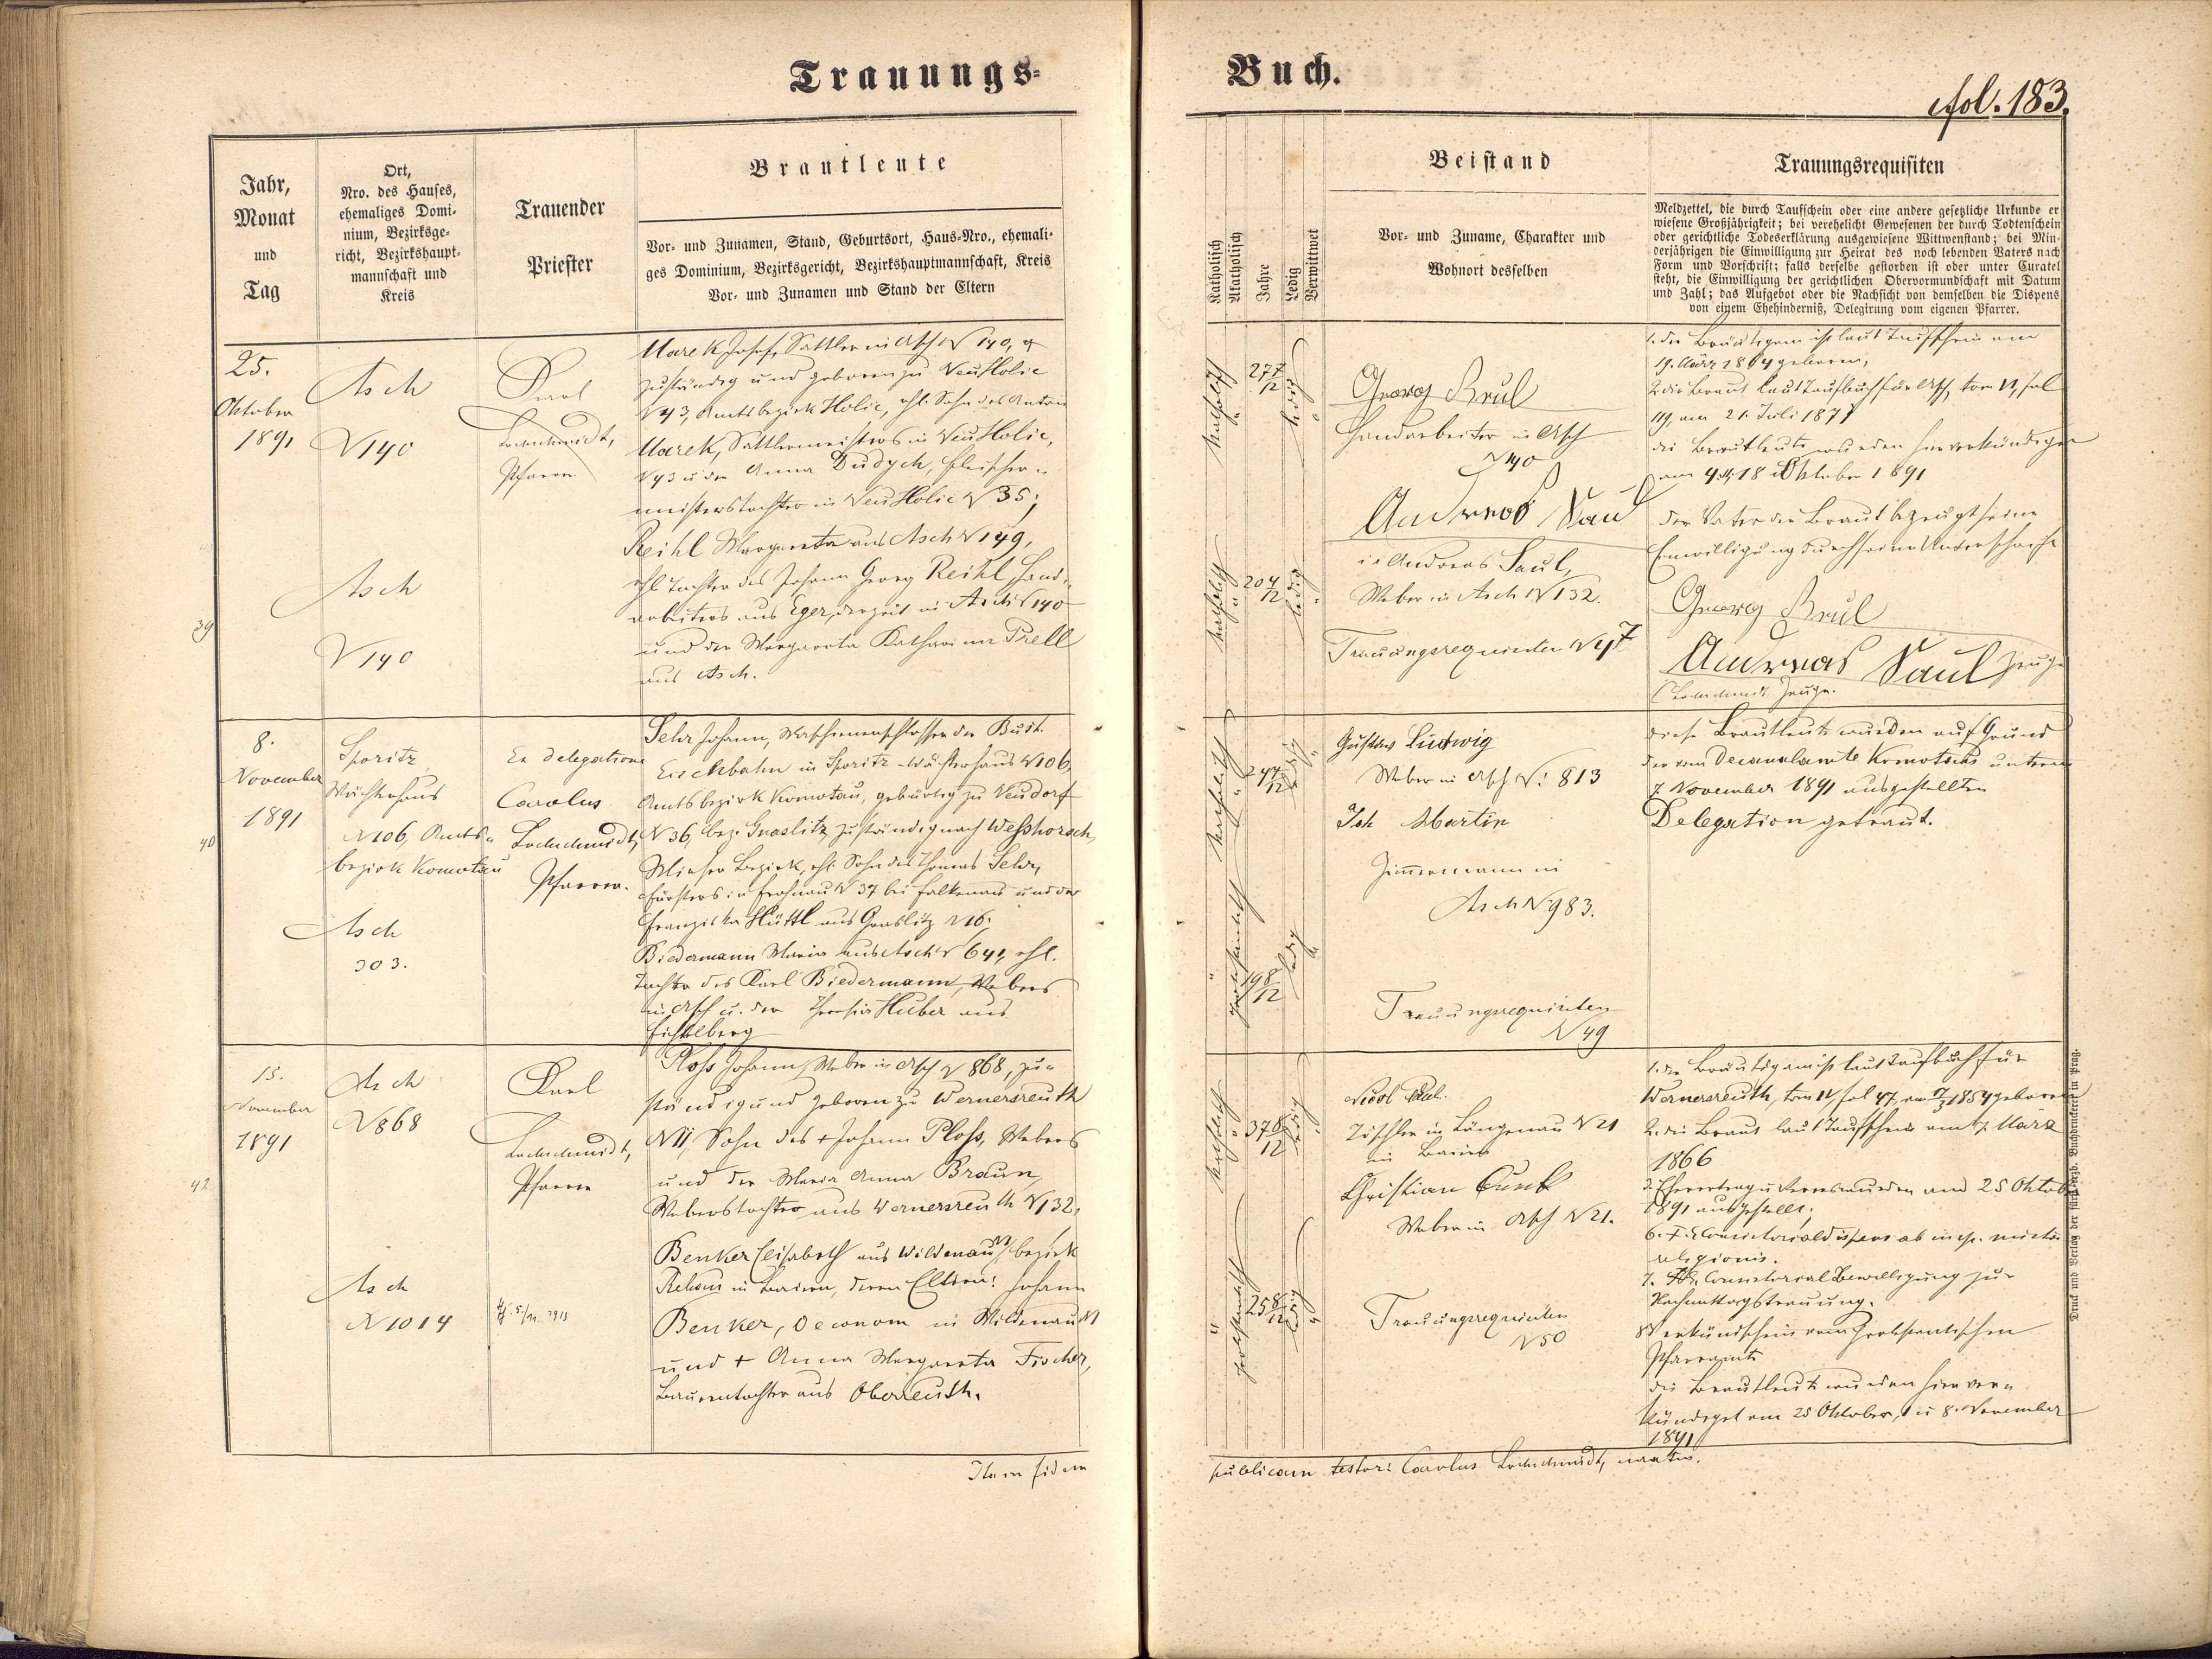 Trauungs-
Buch.
fol. 183.
Jahr,
Monat
und
Tag
Ort,
Nro. des Hauses,
ehemaliges Domi-
nium, Bezirksge-
richt, Bezirkshaupt-
mannschaft und
Kreis
Trauender
Priester
Brautleute
Vor- und Zunamen, Stand, Geburtsort, Haus-Nro., ehemali-
ges Dominium, Bezirksgericht, Bezirkshauptmannschaft, Kreis
Vor- und Zunamen und Stand der Eltern
Katholisch
Akatholisch
Jahre
Ledig
Verwittwet
Beistand
Vor- und Zuname, Charakter und
Wohnort desselben
Trauungsrequisiten
Meldzettel, die durch Taufschein oder eine andere gesetzliche Urkunde er
wiesene Großjährigkeit; bei verehelicht Gewesenen der durch Todtenschein
oder gerichtliche Todeserklärung ausgewiesene Wittwenstand; bei Min-
derjährigen die Einwilligung zur Heirat des noch lebenden Vaters nach
Form und Vorschrift; falls derselbe gestorben ist oder unter Curatel
steht, die Einwilligung der gerichtlichen Obervormundschaft mit Datum
und Zahl; das Aufgebot oder die Nachsicht von demselben die Dispens
von einem Ehehinderniß, Delegirung vom eigenen Pfarrer.
25.
Oktober
1891
Asch
N 140
Asch
N 140
39
Karl
Lochschmidt,
Pfarrer
Marek Josef, Sattler in Asch N 140,
zuständig und geboren zu Neu Holic
N 43, Amtsbezirk Holic, ehl. Sohn des Anton
Marek, Sattlermeisters in Neu Holic,
N 43 u. der Anna Dudych, Fleischer-
meisterstochter in Neu Holic N 35;
Reihl Margareta aus Asch N 149,
ehl. Tochter des Johann Georg Reihl, Hand-
arbeiters aus Eger, derzeit in Asch N 140
und der Margareta Katharina Prell
aus Asch.
katholisch
27 7/12
ledig
katholisch
20 4/12
ledig
Georg Brül
Handarbeiter in Asch
N 140
Andreas Saul
Andreas Saul,
Weber in Asch N 132.
Trauungsrequisiten N 47
1. der Bräutigam ist laut Taufschein am
19. März 1864 geboren,
2. die Braut laut Taufbuch für Asch, tom 11, fol
119, am 21. Juli 1871
die Brautleute wurden hier verkündiget
am 4. 11. 18 Oktober 1891
Der Vater der Braut bezeugt seine
Einwilligung durch seine Unterschrift
Georg Brül
Andreas Saul Zeuge
Lochschmidt Zeuge.
8.
November
1891
40
Sporitz
Wächterhaus
N 106, Amts-
bezirk Komotau
Asch
303.
Ex delegatione
Carolus
Lochschmidt,
Pfarrer.
Johann, Maschinenschlosser der Busch.
Eisenbahn in Sporitz Wächterhaus N 106,
Amtsbezirk Komotau, gebürtig zu Neudorf
N 36, bez. Graslitz, zuständig nach
Bezirk, ehl. Sohn des Thomas
Försters in Frohnau N 37 bei Falkenau und der
Franziska Hüttl aus Graslitz N 16.
Biedermann Maria aus Asch N 641, ehl.
Tochter des Karl Biedermann, Webers
in Asch u. der Theresia Huber aus
Fichtelberg
katholisch
24 7/12
ledig
protestantisch
19 8/12
ledig
Gustav Ludwig
Weber in Asch N: 813
Joh Martin
Zimmermann in
Asch N 983.
Trauungsrequisiten
N 49
diese Brautleute wurden auf Grund
der vom Decanalamte Komotau unterm
7. November 1891 ausgestellten
Delegation getraut.
15.
November
1891
42
Asch
N 868
Asch
N 1014
Karl
Lochschmidt,
Pfarrer
Ploss Johann, Weber in Asch N 868, zu-
ständig und geboren zu Wernersreuth
N 11, Sohn des + Johann Ploss, Webers
und der Maria Anna Braun,
Weberstochter aus Wernersreuth N 132,
Benker Elisabeth aus Wildenau, N 1 bezirk
Rehau in Baiern, deren Eltern: Johann
Benker, Oeconom in Wildenau N 1
und + Anna Margareta Fischer,
Bauerntochter aus Oberreuth.
katholisch
37 8/12
ledig
protestantisch
25 8/12
ledig
Tischler in Längenau N 21
in Baiern
Christian
Weber in Asch N 21.
Trauungsrequisiten
N 50
1. der Bräutigam ist laut Taufbuch für
Wernersreuth, tom 11, fol 47, am 1854 geboren
2. die Braut laut Taufschein am 7. März
1866
Ehevertrag u. Revers wurden am 25 Oktober
1891 ausgestellt;
6. Consistorialdispens ab imp. mixtae
religionis.
7. Consistorial Bewilligung zur
Nachmittagstrauung.
8. Verkündschein vom protestantischen
Pfarramte
die Brautleute wurden hier ver-
kündiget am 25 Oktober, 1 u 8. November
1891
Ita in fidem
publicam testor: Carolus Lochschmidt,
Druck und Verlag der fürst-erzb. Buchdruckerei in Prag.